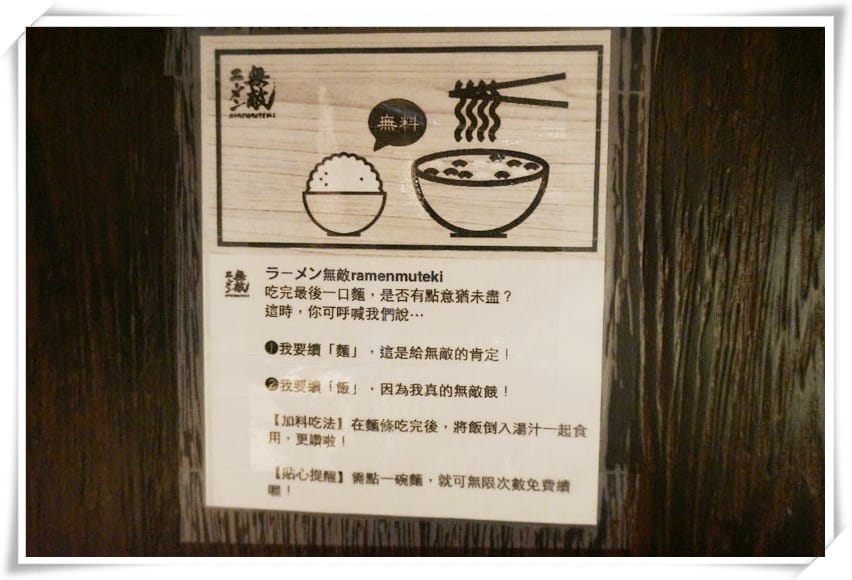 無敵
ラーメン
RAMENMUTEKI
無料
無敵
ラーメン
ラーメン無敵ramenmuteki
吃完最後一口麵，是否有點意猶未盡？
這時，你可呼喊我們說…
❶我要續「麵」，這是給無敵的肯定！
❷我要續「飯」，因為我真的無敵餓！
【加料吃法】在麵條吃完後，將飯倒入湯汁一起食
用，更讚啦！
【貼心提醒】需點一碗麵，就可無限次數免費續
喔！